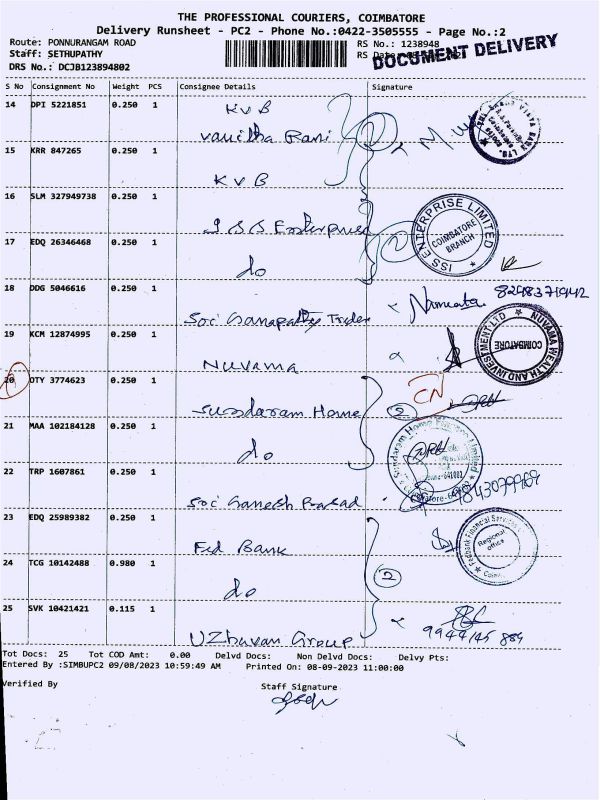 THE PROFESSIONAL COURIERS, COIMBATORE
Delivery Runsheet - PC2 - Phone No.:0422-3505555 - Page No.:2
Route: PONNURANGAM ROAD
RS No.: 1238948
Staff: SETHUPATHY
RS
DOCUMENT DELIVERY
DRS No.: DCJB123894802
S No Consignment No Weight PCS Consignee Details Signature
14 DPI 5221851 0.250 1 KVB
Vanitha Rani
15 KRR 847265 0.250 1
KVB
16 SLM 327949738 0.250 1
ISS Enterprises
ISS ENTERPRISE LIMITED
COIMBATORE
BRANCH
17 EDQ 26346468 0.250 1
do
18 DDG 5046616 0.250 1
Sri Ganapathy Traders
19 KCM 12874995 0.250 1
Nuvama
NUVAMA WEALTH AND INVESTMENT LTD
COIMBATORE
20 OTY 3774623 0.250 1
CN
Sundaram Home
2
21 MAA 102184128 0.250 1
do
Sundaram Home Finance Limited
22 TRP 1607861 0.250 1
Sri Ganesh Prasad
23 EDQ 25989382 0.250 1
Fed Bank
Fedbank Financial Services
Regional
office
24 TCG 10142488 0.980 1
do
2
25 SVK 10421421 0.115 1
Uzhavan Group
9944145 884
Tot Docs: 25 Tot COD Amt: 0.00 Delvd Docs: Non Delvd Docs: Delvy Pts:
Entered By :SIMBUPC2 09/08/2023 10:59:49 AM Printed On: 08-09-2023 11:00:00
Verified By
Staff Signature